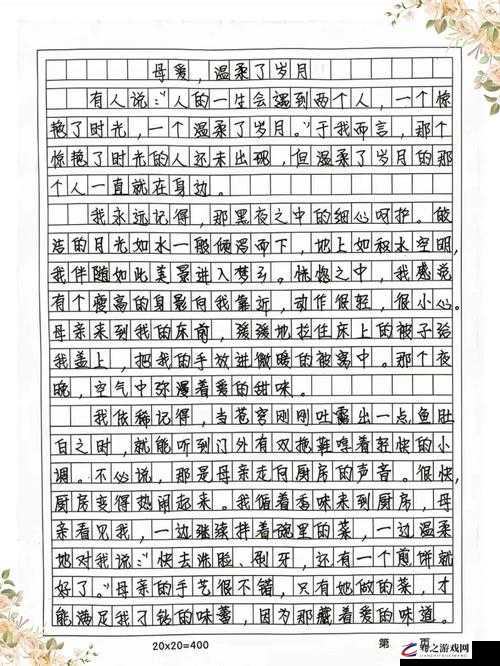 母爱，温柔了岁月
有人说：“人的一生会遇到两个人，一个惊
艳了时光，一个温柔了岁月。”于我而言，那个
惊艳了时光的人还未出现，但温柔了岁月的那
个人一直就在身边。
我永远记得，那黑夜之中的细心呵护。皎
洁的月光如水一般倾泻而下，地上如积水空明，
我伴随如此美景进入梦乡。恍惚之中，我感觉
有个瘦高的身影向我靠近，动作很轻，很小心。
母亲来到我的床前，缓缓地拉住床上的被子给
我盖上，把我的手放进微暖的被窝中。那个夜
晚，空气中弥漫着爱的甜味。
我依稀记得，当苍穹刚刚吐露出一点鱼肚
白之时，就能听到门外有双拖鞋哼着轻快的小
调。不必说，那是母亲走向厨房的声音。很快，
厨房变得热闹起来。我循着香味来到厨房，母
亲看见我，一边继续拌着碗里的菜，一边温柔
地对我说：“快去洗脸、刷牙，还有一个煎饼就
好了。”母亲的手艺很不错，只有她做的菜，才
能满足我刁钻的味蕾，因为那藏着爱的味道。
20×20=400
第 页
粤之游戏网